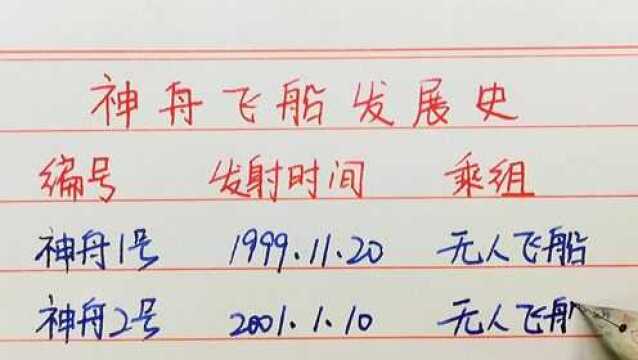 神舟飞船发展史
编号 发射时间 乘组
神舟1号 1999.11.20 无人飞船
神舟2号 2001.1.10 无人飞船